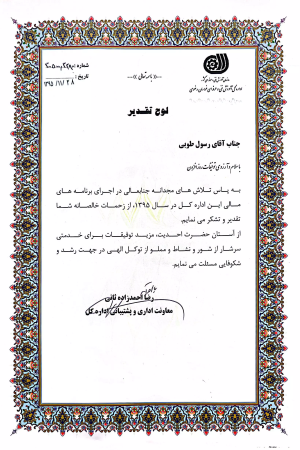 باسمه تعالی
شماره
تاریخ : ۱۳۹۵/۱۱/۲۸
لوح تقدیر
جناب آقای رسول طوبی
با سلام و آرزوی توفیقات روزافزون
به پاس تلاش های مجدانه جنابعالی در اجرای برنامه های
مالی این اداره کل در سال ۱۳۹۵، از زحمات خالصانه شما
تقدیر و تشکر می نمایم.
از آستان حضرت احدیت، مزید توفیقات برای خدمتی
سرشار از شور و نشاط و مملو از توکل الهی در جهت رشد و
شکوفایی مسئلت می نمایم.
رضا احمدزاده ثانی
معاونت اداری و پشتیبانی اداره کل